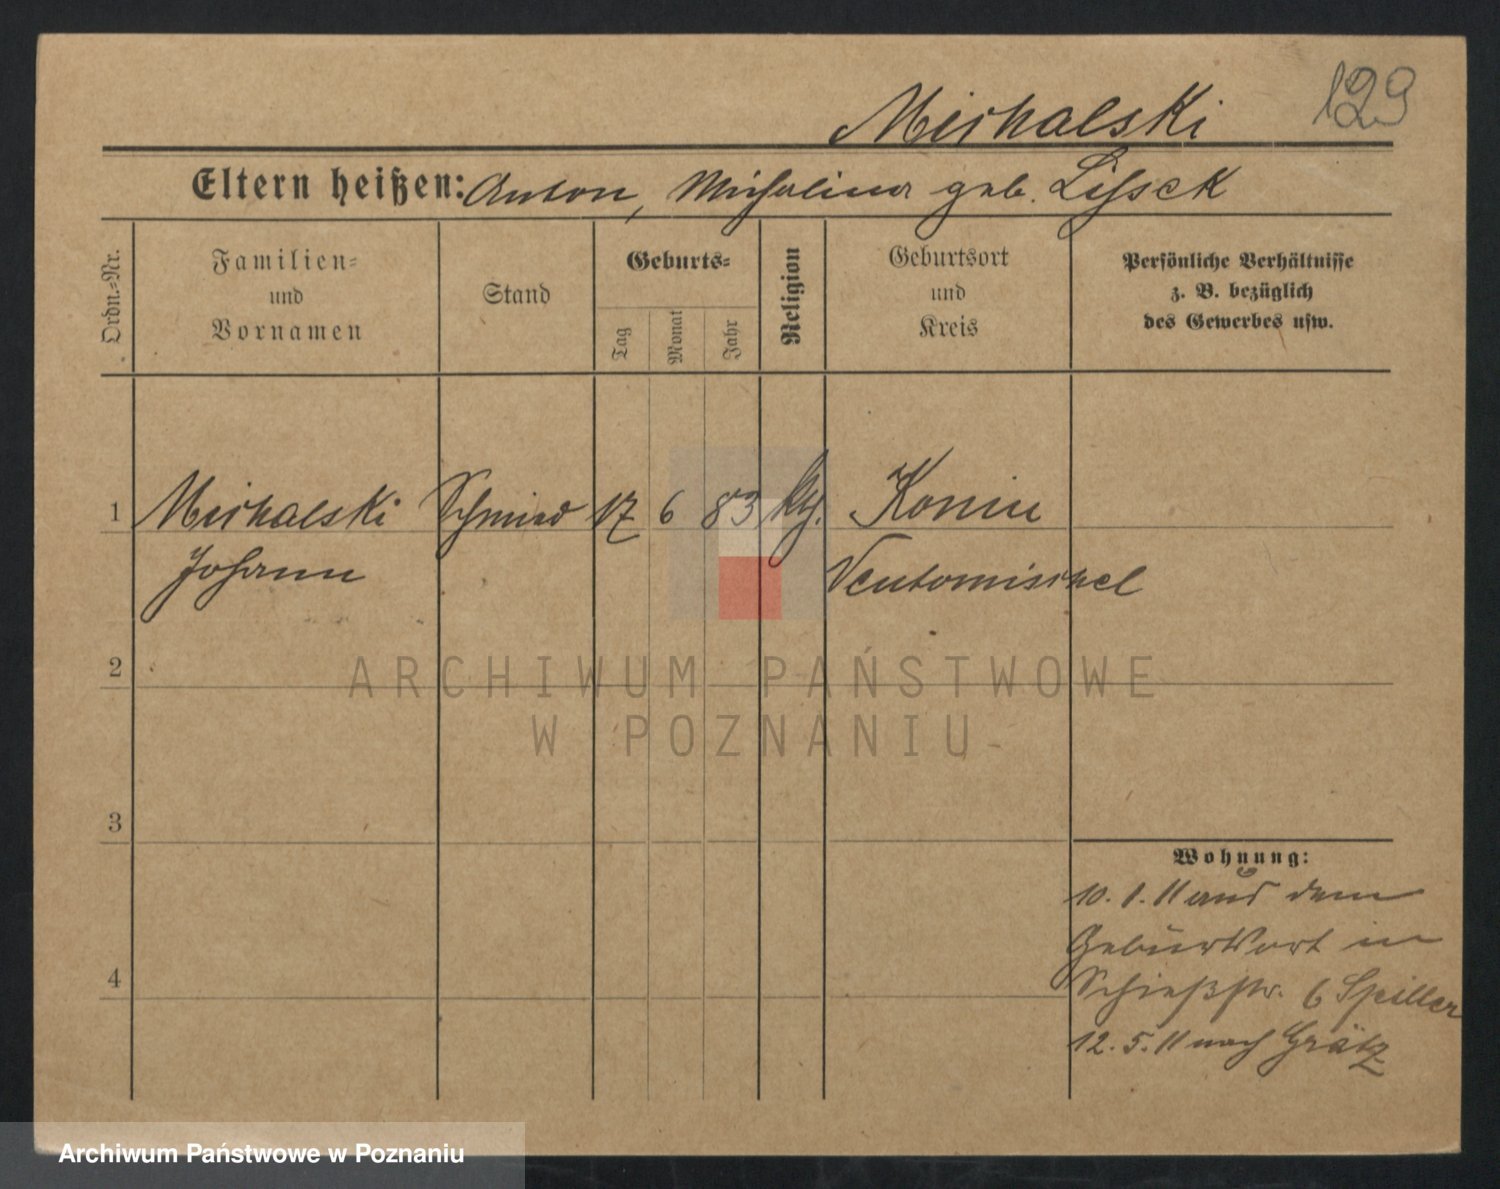 129
Michalski
Eltern heißen: Anton, Michalina geb. Lissek
Ordn.=Nr.
Familien=
und
Vornamen
Stand
Geburts=
Tag
Monat
Jahr
Religion
Geburtsort
und
Kreis
Persönliche Verhältnisse
z. B. bezüglich
des Gewerbes usw.
1 Michalski Schmied 17 6 83 kth. Konin
Johann Neutomischel
2
ARCHIWUM PAŃSTWOWE
W POZNANIU
3
Wohnung:
10. 1. 11 aus dem
Geburtsort in
4
Schießstr. 6 Spiller
12. 5. 11 nach Grätz
Archiwum Państwowe w Poznaniu